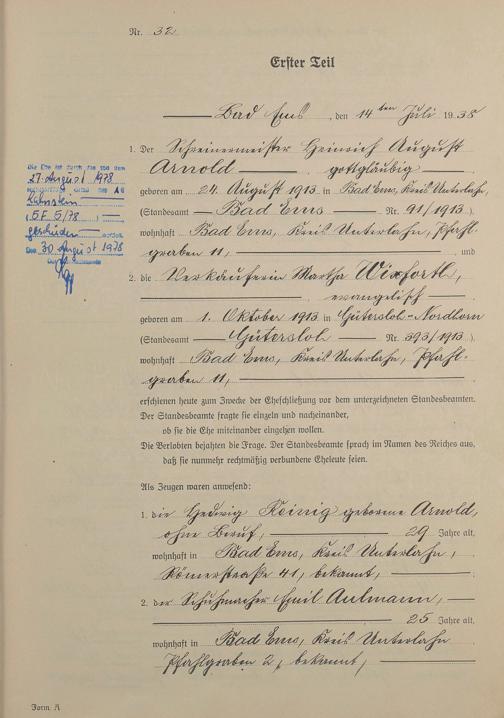 Nr. 32
Erster Teil
Bad Ems, den 14ten Juli 1938
1. Der Schreinermeister Heinrich August
Arnold gottgläubig
geboren am 24. August 1913 in Bad Ems, Kreis Unterlahn,
(Standesamt Bad Ems Nr. 91/1913)
wohnhaft Bad Ems, Kreis Unterlahn, Pfahl-
graben 11, und
2. die Verkäuferin Martha Wixforth,
evangelisch
geboren am 1. Oktober 1913 in Gütersloh-Nordhorn
(Standesamt Gütersloh Nr. 393/1913)
wohnhaft Bad Ems, Kreis Unterlahn, Pfahl-
graben 11,
erschienen heute zum Zwecke der Eheschließung vor dem unterzeichneten Standesbeamten.
Der Standesbeamte fragte sie einzeln und nacheinander,
ob sie die Ehe miteinander eingehen wollen.
Die Verlobten bejahten die Frage. Der Standesbeamte sprach im Namen des Reiches aus,
daß sie nunmehr rechtmäßig verbundene Eheleute seien.
Als Zeugen waren anwesend:
1. die Hedwig Reinig geborene Arnold,
ohne Beruf, 29 Jahre alt,
wohnhaft in Bad Ems, Kreis Unterlahn,
Römerstraße 41, bekannt,
2. der Schuhmacher Emil Aulmann,
25 Jahre alt,
wohnhaft in Bad Ems, Kreis Unterlahn
Pfahlgraben 2, bekannt,
Form. A
Die Ehe ist durch das vor dem
27. August 1978
des AG
Lahnstein
(5F 5/78)
geschieden worden.
Den 30. August 1978